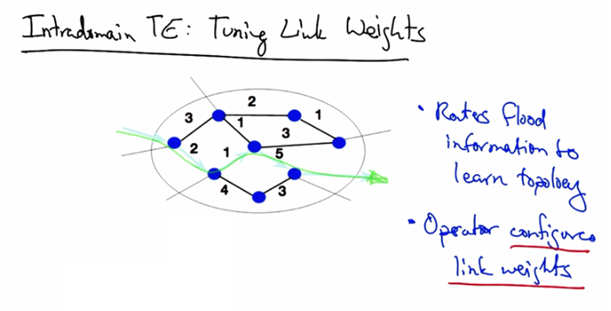 Intradomain TE: Tuning Link Weights
2
3
1
1
3
2
1
5
4
3
• Routes flood
information to
learn topology
• Operator configures
link weights